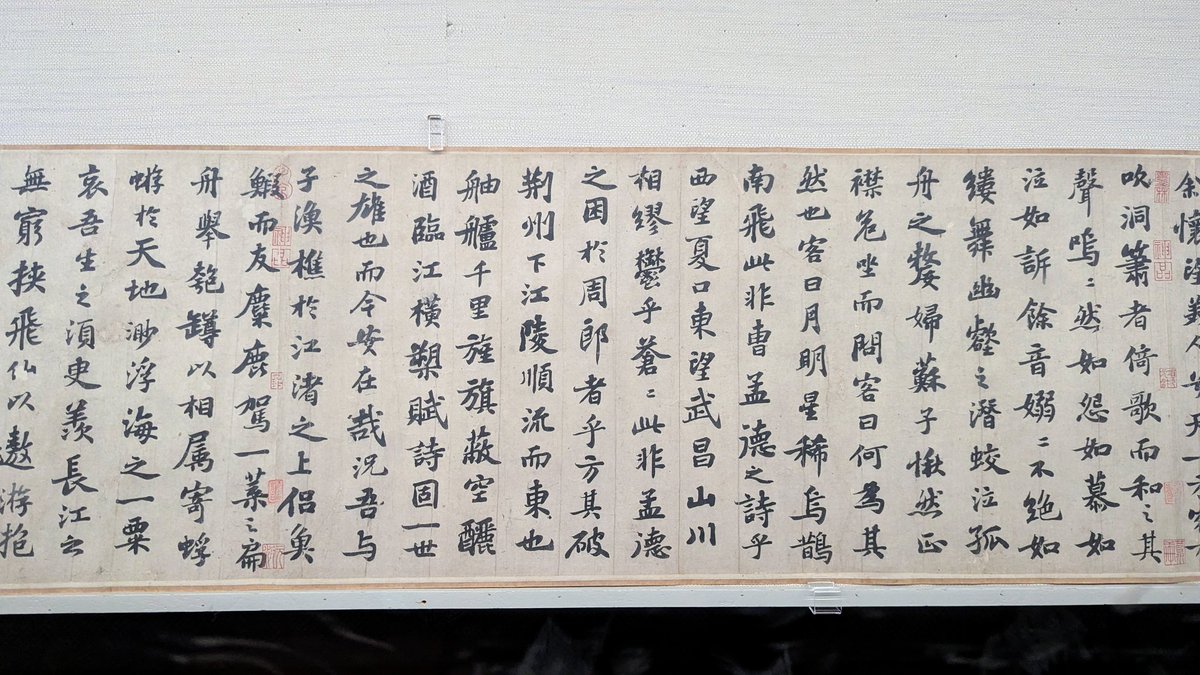 余懷望美人兮天一方客有
吹洞簫者倚歌而和之其
聲嗚〻然如怨如慕如
泣如訴餘音嫋〻不絕如
縷舞幽壑之潛蛟泣孤
舟之嫠婦蘇子愀然正
襟危坐而問客曰何為其
然也客曰月明星稀烏鵲
南飛此非曹孟德之詩乎
西望夏口東望武昌山川
相繆鬱乎蒼〻此非孟德
之困於周郎者乎方其破
荊州下江陵順流而東也
舳艫千里旌旗蔽空釃
酒臨江橫槊賦詩固一世
之雄也而今安在哉況吾与
子漁樵於江渚之上侶魚
鰕而友麋鹿駕一葉之扁
舟舉匏罇以相属寄蜉
蝣於天地渺浮海之一粟
哀吾生之須臾羨長江之
無窮挾飛仙以遨游抱